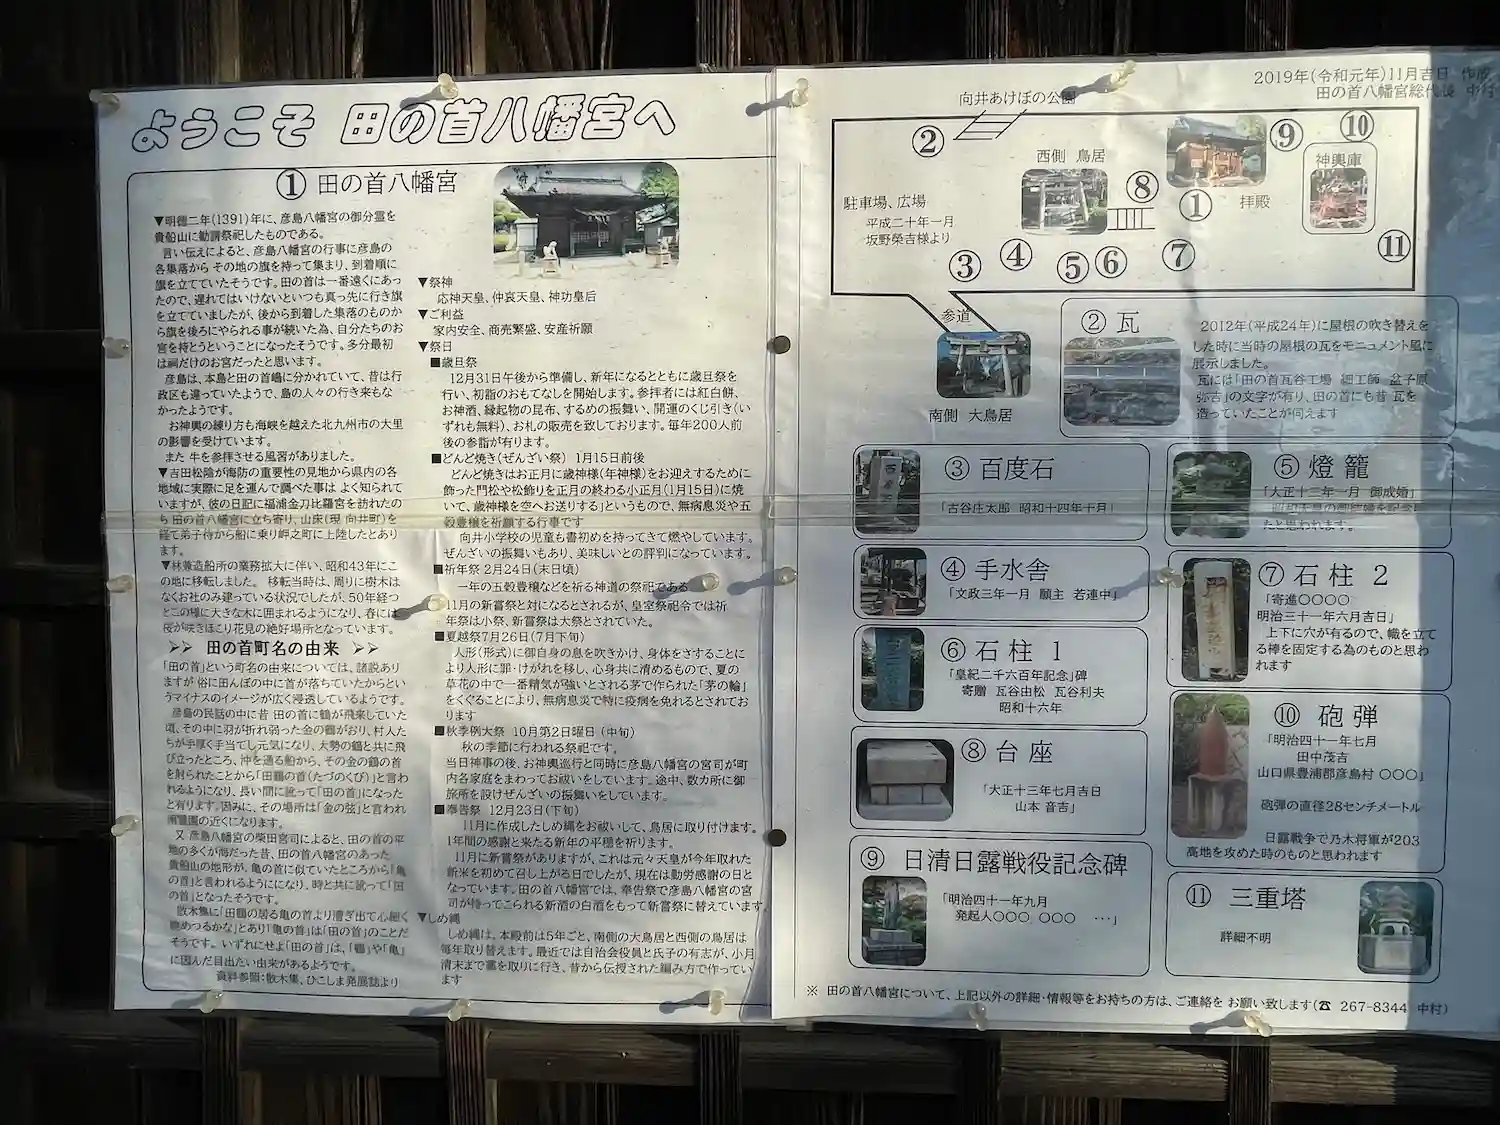 ようこそ 田の首八幡宮へ
① 田の首八幡宮
▼明徳二年(1391)年に、彦島八幡宮の御分霊を
貴船山に勧請祭祀したものである。
言い伝えによると、彦島八幡宮の行事に彦島の
各集落から その地の旗を持って集まり、到着順に
旗を立てていたそうです。田の首は一番遠くにあっ
たので、遅れてはいけないといつも真っ先に行き旗
を立てていましたが、後から到着した集落のものか
ら旗を後ろにやられる事が続いた為、自分たちのお
宮を持とうということになったそうです。多分最初
は祠だけのお宮だったと思います。
彦島は、本島と田の首嶋に分かれていて、昔は行
政区も違っていたようで、島の人々の行き来もな
かったようです。
お神輿の練り方も海峡を越えた北九州市の大里
の影響を受けています。
また 牛を参拝させる風習がありました。
▼吉田松陰が海防の重要性の見地から県内の各
地域に実際に足を運んで調べた事は よく知られて
いますが、彼の日記に福浦金刀比羅宮を訪れたの
ち 田の首八幡宮に立ち寄り、山床(現 向井町)を
経て弟子待から船に乗り岬之町に上陸したとあり
ます。
▼林兼造船所の業務拡大に伴い、昭和43年にこ
の地に移転しました。 移転当時は、周りに樹木は
なくお社のみ建っている状況でしたが、50年経つ
とこの様に大きな木に囲まれるようになり、春には
桜が咲きほこり花見の絶好場所となっています。
➢➢ 田の首町名の由来 ➢➢
「田の首」という町名の由来については、諸説あり
ますが 俗に田んぼの中に首が落ちていたからとい
うマイナスのイメージが広く浸透しているようです。
彦島の民話の中に昔 田の首に鶴が飛来していた
頃、その中に羽が折れ弱った金の鶴がおり、村人た
ちが手厚く手当てし元気になり、大勢の鶴と共に飛
び立ったところ、沖を通る船から、その金の鶴の首
を射られたことから「田鶴の首(たづのくび)」と言わ
れるようになり、長い間に訛って「田の首」になった
と有ります。因みに、その場所は「金の弦」と言われ
南風園の近くになります。
又 彦島八幡宮の柴田宮司によると、田の首の平
地の多くが海だった昔、田の首八幡宮のあった
貴船山の地形が、亀の首に似ていたところから「亀
の首」と言われるようになり、時と共に訛って「田
の首」となったそうです。
散木集に「田鶴の居る亀の首より漕ぎ出て心細く
眺めつるかな」とあり「亀の首」は「田の首」のことだ
そうです。いずれにせよ「田の首」は、「鶴」や「亀」
に因んだ目出たい由来があるようです。
資料参照:散木集、ひこしま発展誌より
▼祭神
応神天皇、仲哀天皇、神功皇后
▼ご利益
家内安全、商売繁盛、安産祈願
▼祭日
■歳旦祭
12月31日午後から準備し、新年になるとともに歳旦祭を
行い、初詣のおもてなしを開始します。参拝者には紅白餅、
お神酒、縁起物の昆布、するめの振舞い、開運のくじ引き(い
ずれも無料)、お札の販売を致しております。毎年200人前
後の参詣が有ります。
■どんど焼き(ぜんざい祭) 1月15日前後
どんど焼きはお正月に歳神様(年神様)をお迎えするために
飾った門松や松飾りを正月の終わる小正月(1月15日)に焼
いて、歳神様を空へお送りする」というもので、無病息災や五
穀豊穣を祈願する行事です
向井小学校の児童も書初めを持ってきて燃やしています。
ぜんざいの振舞いもあり、美味しいとの評判になっています。
■祈年祭 2月24日(末日頃)
一年の五穀豊穣などを祈る神道の祭祀である
11月の新嘗祭と対になるとされるが、皇室祭祀令では祈
年祭は小祭、新嘗祭は大祭とされていた。
■夏越祭7月26日(7月下旬)
人形(形式)に御自身の息を吹きかけ、身体をさすることに
より人形に罪・けがれを移し、心身共に清めるもので、夏の
草花の中で一番精気が強いとされる茅で作られた「茅の輪」
をくぐることにより、無病息災で特に疫病を免れるとされてお
ります
■秋季例大祭 10月第2日曜日 (中旬)
秋の季節に行われる祭祀です。
当日神事の後、お神輿巡行と同時に彦島八幡宮の宮司が町
内各家庭をまわってお祓いをしています。途中、数カ所に御
旅所を設けぜんざいの振舞いをしています。
■奉告祭 12月23日(下旬)
11月に作成したしめ縄をお祓いして、鳥居に取り付けます。
1年間の感謝と来たる新年の平穏を祈ります。
11月に新嘗祭がありますが、これは元々天皇が今年取れた
新米を初めて召し上がる日でしたが、現在は勤労感謝の日と
なっています。田の首八幡宮では、奉告祭で彦島八幡宮の宮
司が持ってこられる新酒の白酒をもって新嘗祭に替えています。
▼しめ縄
しめ縄は、本殿前は5年ごと、南側の大鳥居と西側の鳥居は
毎年取り替えます。最近では自治会役員と氏子の有志が、小月
清末まで藁を取りに行き、昔から伝授された編み方で作ってい
ます
2019年(令和元年)11月吉日 作成
田の首八幡宮総代長 中村
向井あけぼの公園
②
西側 鳥居
⑧
①
拝殿
⑨
⑩
神輿庫
⑪
駐車場、広場
平成二十年一月
坂野榮吉様より
③
④
⑤
⑥
⑦
参道
南側 大鳥居
② 瓦
2012年(平成24年)に屋根の吹き替えを
した時に当時の屋根の瓦をモニュメント風に
展示しました。
瓦には「田の首瓦谷工場 細工師 盆子原
弥吉」の文字が有り、田の首にも昔 瓦を
造っていたことが伺えます
③ 百度石
「古谷庄太郎 昭和十四年十月」
④ 手水舎
「文政三年一月 願主 若連中」
⑥ 石柱 1
「皇紀二千六百年記念」碑
寄贈 瓦谷由松 瓦谷利夫
昭和十六年
⑧ 台座
「大正十三年七月吉日
山本 音吉」
⑨ 日清日露戦役記念碑
「明治四十一年九月
発起人〇〇〇 〇〇〇 …」
⑤ 燈籠
「大正十三年一月 御成婚」
たと思われます。
⑦ 石柱 2
「寄進〇〇〇〇
明治三十一年六月吉日」
上下に穴が有るので、幟を立て
る棒を固定する為のものと思わ
れます
⑩ 砲弾
「明治四十一年七月
田中茂吉
山口県豊浦郡彦島村 〇〇〇」
砲弾の直径28センチメートル
日露戦争で乃木将軍が203
高地を攻めた時のものと思われます
⑪ 三重塔
詳細不明
※ 田の首八幡宮について、上記以外の詳細・情報等をお持ちの方は、ご連絡を お願い致します(☎ 267-8344 中村)